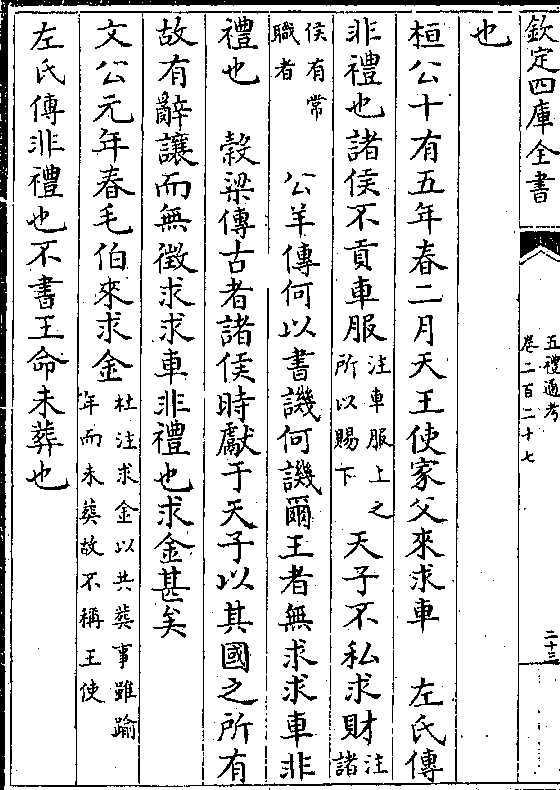 欽定四庫全書
五禮通考
卷二百二十七
二十三
也
桓公十有五年春二月天王使家父來求車　左氏傳
非禮也諸侯不貢車服注車服上之所以賜下　天子不私求財注諸
侯有常職者　公羊傳何以書譏何譏爾王者無求求車非
禮也　穀梁傳古者諸侯時獻于天子以其國之所有
故有辭讓而無徵求求車非禮也求金甚矣
文公元年春毛伯來求金杜注求金以共葬事雖踰年而未葬故不稱王使
左氏傳非禮也不書王命未葬也